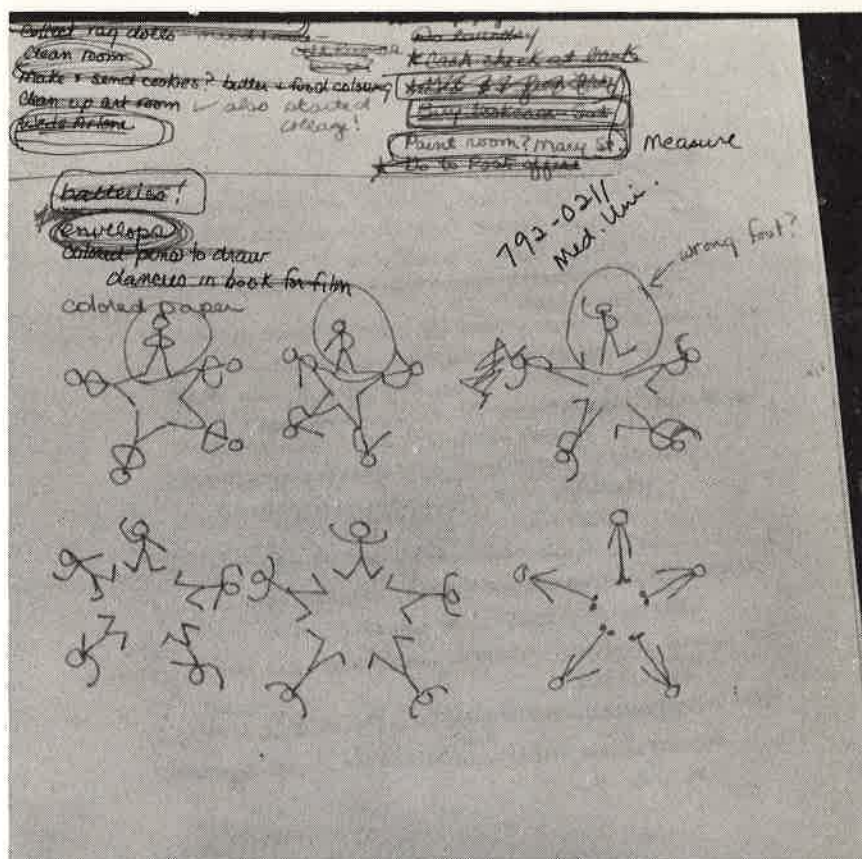 Collect rag dolls
Clean room
Make & send cookies? butter & food coloring
Clean up art room ✓ also started
collage!
Write Arlone
Do laundry
* Cash check at bank
Buy bookcase
Paint room? Mary St. Measure
* Go to Post office
batteries!
envelops
Colored pens to draw
dancies in book for film
colored paper
792-0211
Med. Uni.
wrong foot?